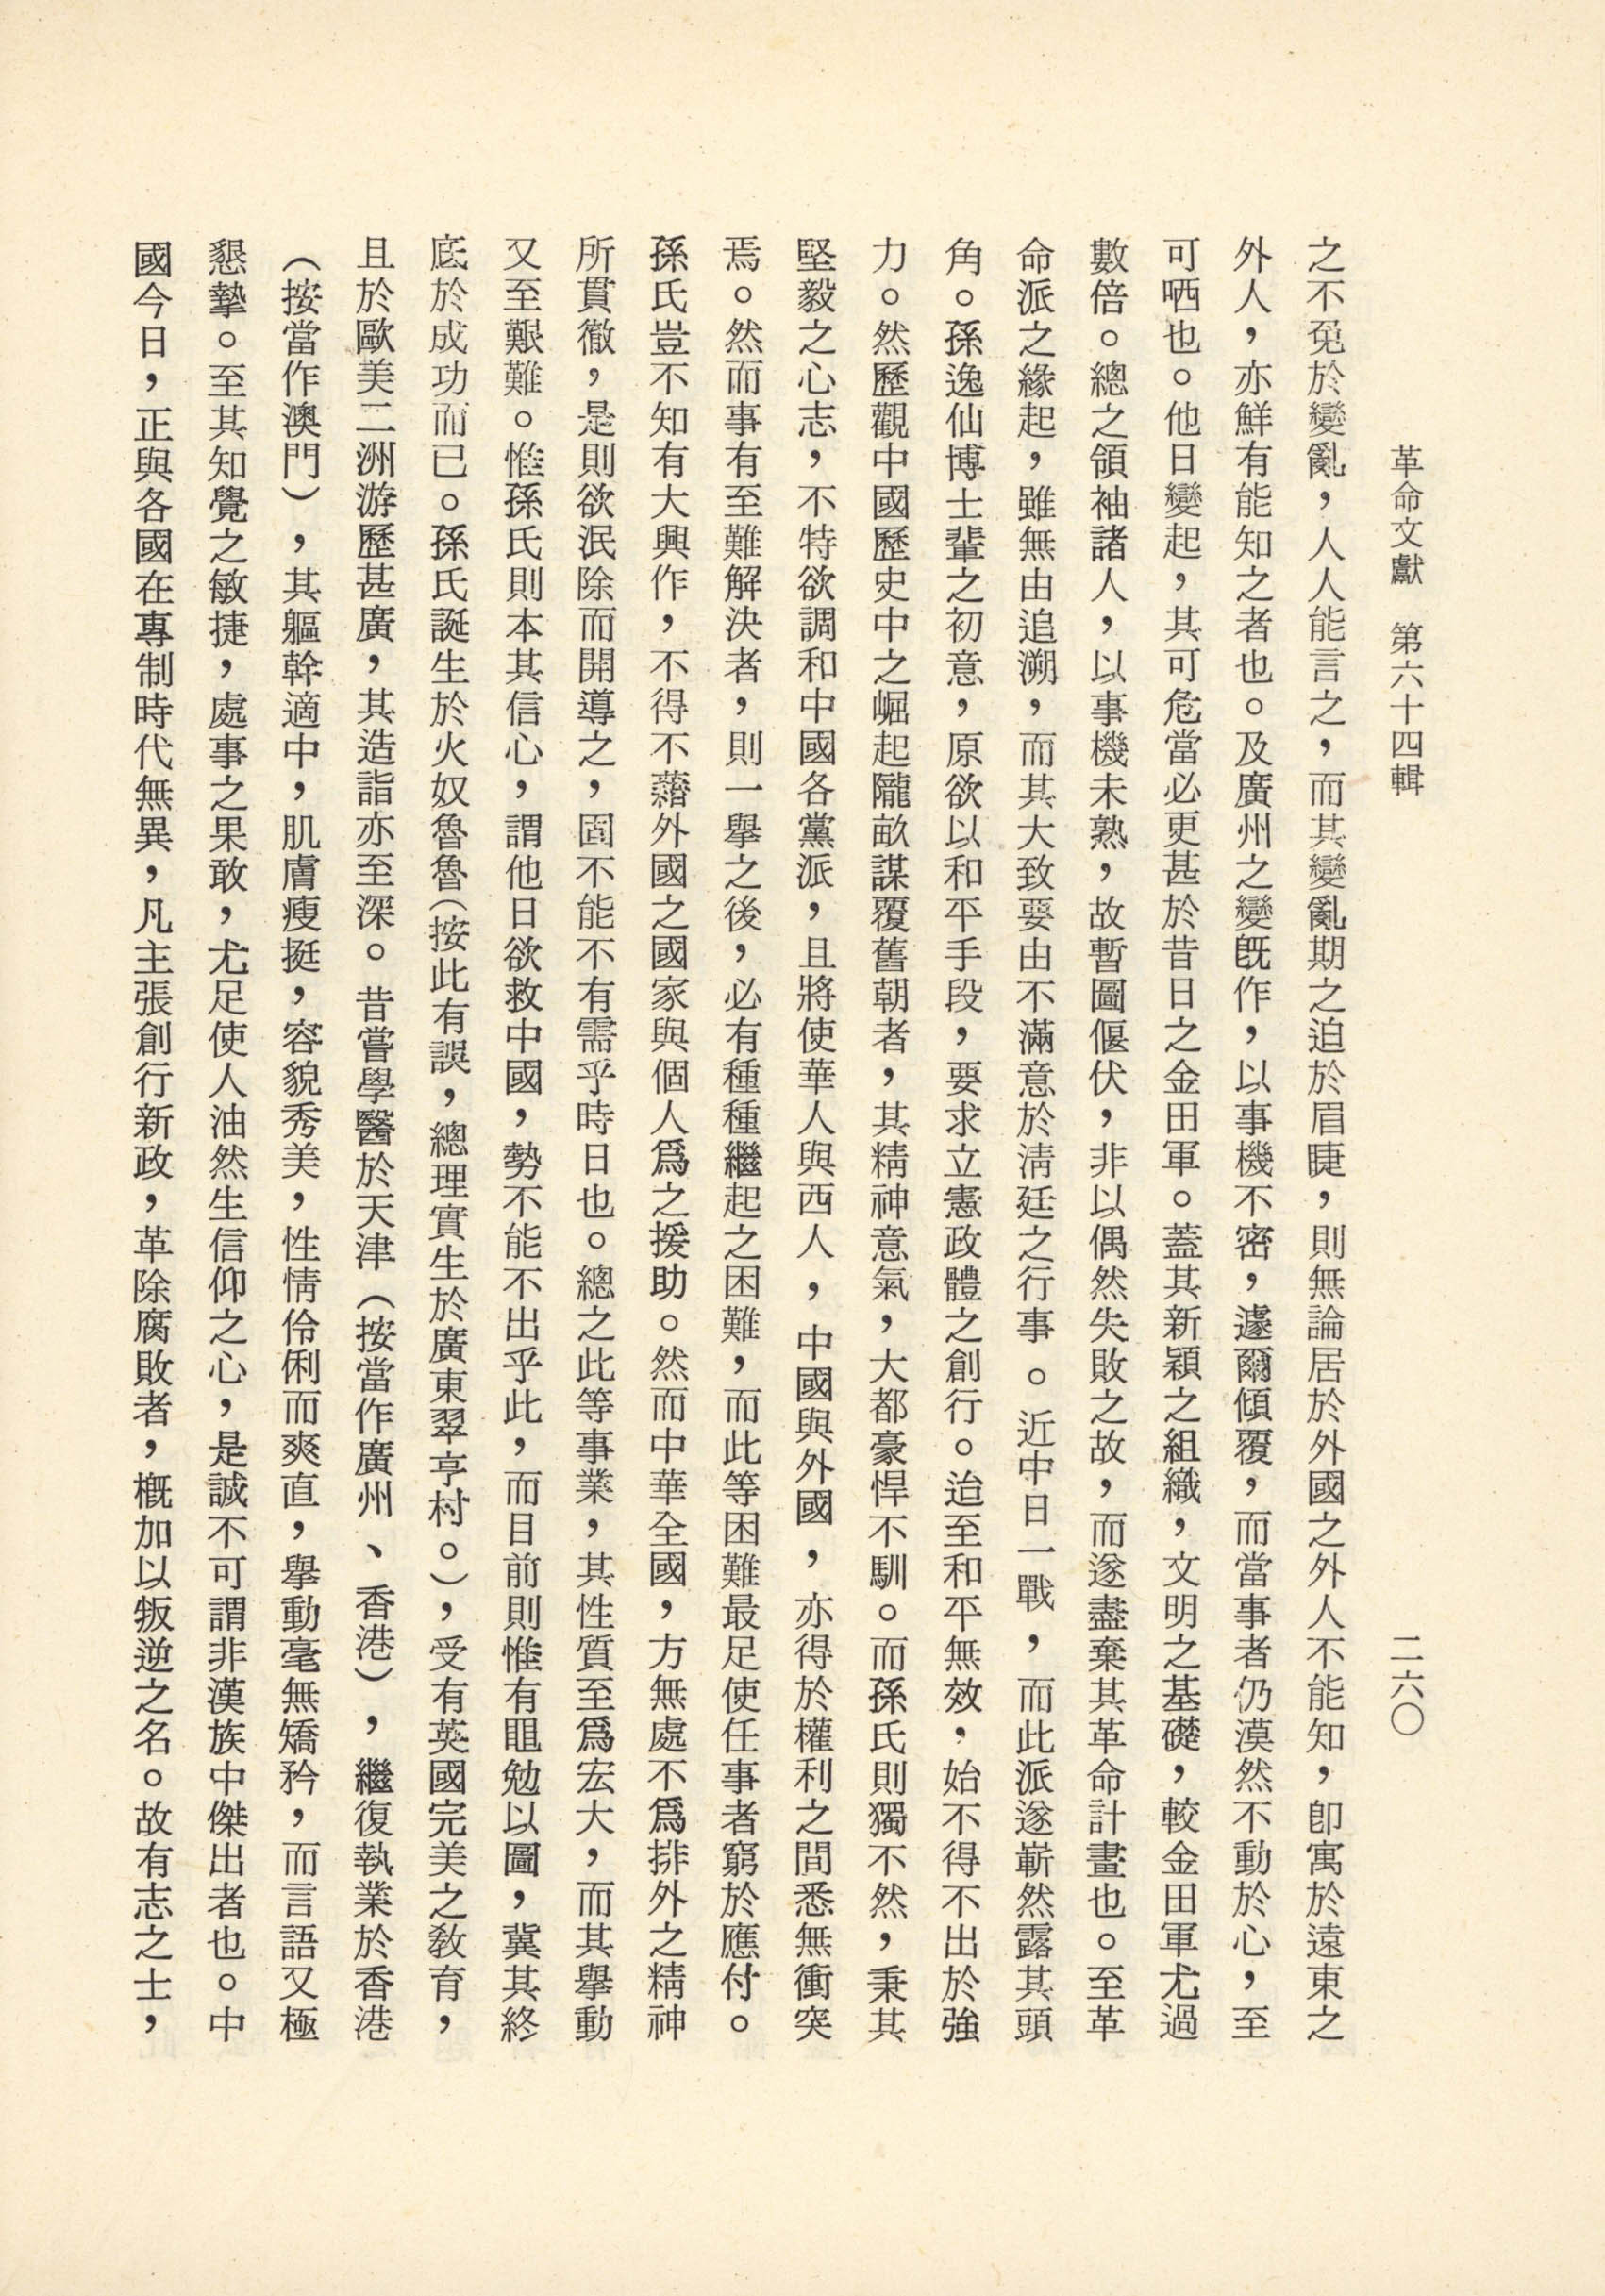 革命文獻　第六十四輯
二六〇
之不免於變亂，人人能言之，而其變亂期之迫於眉睫，則無論居於外國之外人不能知，卽寓於遠東之
外人，亦鮮有能知之者也。及廣州之變旣作，以事機不密，遽爾傾覆，而當事者仍漠然不動於心，至
可哂也。他日變起，其可危當必更甚於昔日之金田軍。蓋其新穎之組織，文明之基礎，較金田軍尤過
數倍。總之領袖諸人，以事機未熟，故暫圖偃伏，非以偶然失敗之故，而遂盡棄其革命計畫也。至革
命派之緣起，雖無由追溯，而其大致要由不滿意於淸廷之行事。近中日一戰，而此派遂嶄然露其頭
角。孫逸仙博士輩之初意，原欲以和平手段，要求立憲政體之創行。迨至和平無效，始不得不出於強
力。然歷觀中國歷史中之崛起隴畝謀覆舊朝者，其精神意氣，大都豪悍不馴。而孫氏則獨不然，秉其
堅毅之心志，不特欲調和中國各黨派，且將使華人與西人，中國與外國，亦得於權利之間悉無衝突
焉。然而事有至難解決者，則一舉之後，必有種種繼起之困難，而此等困難最足使任事者窮於應付。
孫氏豈不知有大興作，不得不藉外國之國家與個人爲之援助。然而中華全國，方無處不爲排外之精神
所貫徹，是則欲泯除而開導之，固不能不有需乎時日也。總之此等事業，其性質至爲宏大，而其舉動
又至艱難。惟孫氏則本其信心，謂他日欲救中國，勢不能不出乎此，而目前則惟有黽勉以圖，冀其終
底於成功而已。孫氏誕生於火奴魯魯（按此有誤，總理實生於廣東翠亨村。），受有英國完美之敎育，
且於歐美二洲游歷甚廣，其造詣亦至深。昔嘗學醫於天津（按當作廣州、香港），繼復執業於香港
（按當作澳門），其軀幹適中，肌膚瘦挺，容貌秀美，性情伶俐而爽直，舉動毫無矯矜，而言語又極
懇摯。至其知覺之敏捷，處事之果敢，尤足使人油然生信仰之心，是誠不可謂非漢族中傑出者也。中
國今日，正與各國在專制時代無異，凡主張創行新政，革除腐敗者，槪加以叛逆之名。故有志之士，